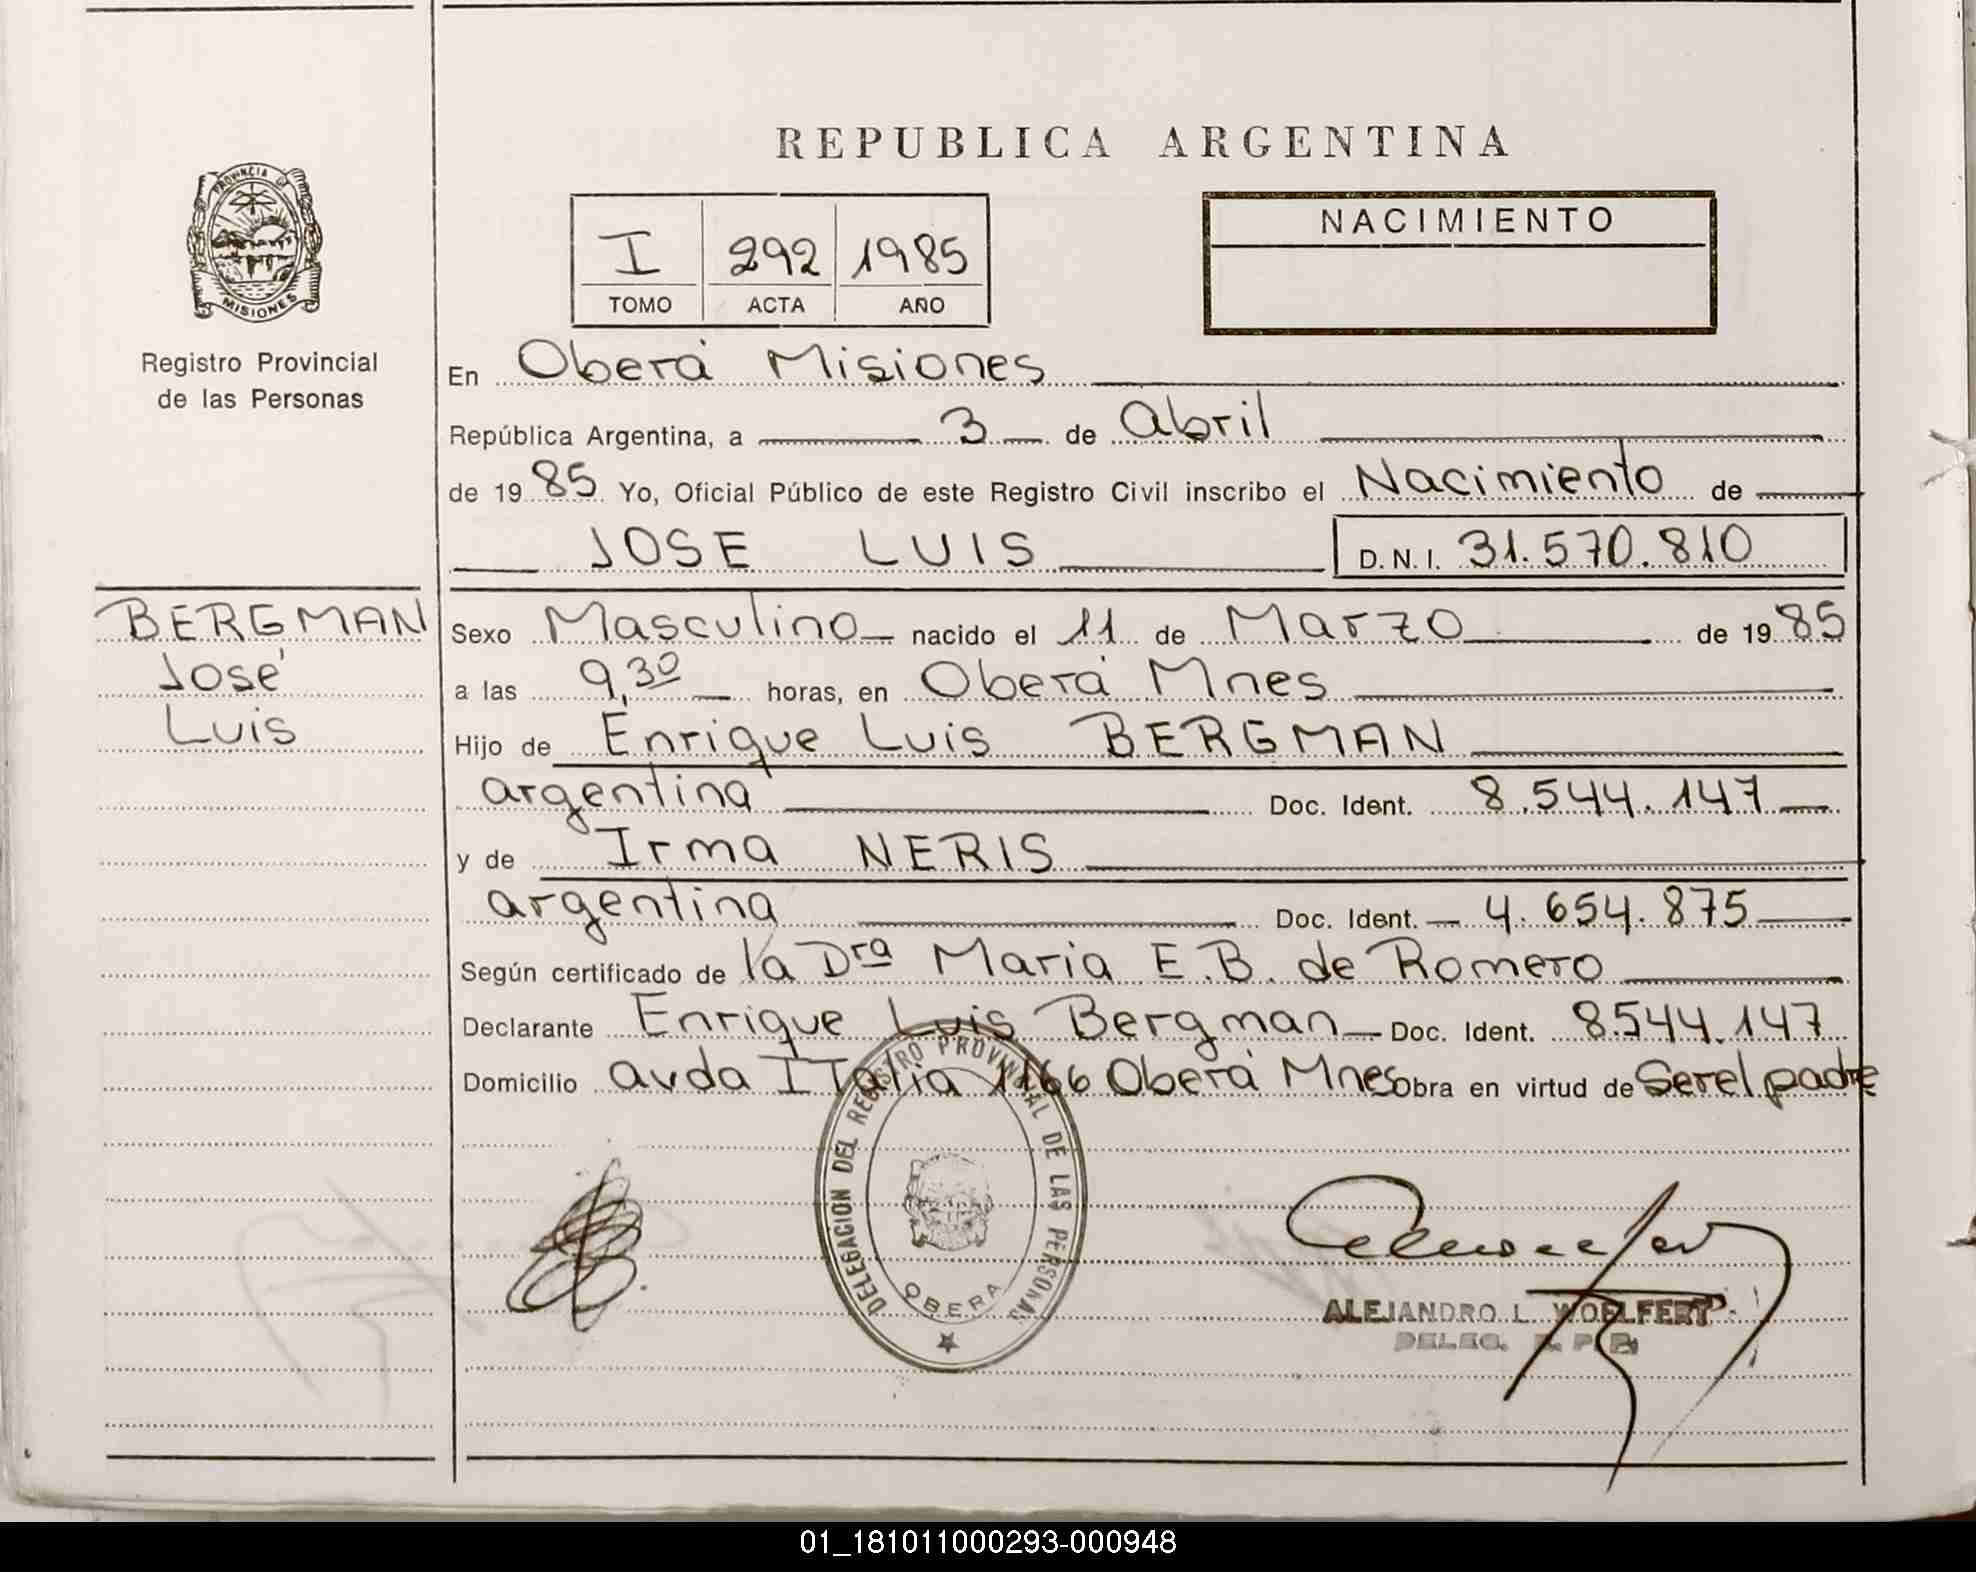 REPUBLICA ARGENTINA
PROVINCIA DE
MISIONES
Registro Provincial
de las Personas
I 292 1985
TOMO ACTA AÑO
NACIMIENTO
En Oberá Misiones
República Argentina, a 3 de Abril
de 1985 Yo, Oficial Público de este Registro Civil inscribo el Nacimiento de
JOSE LUIS D.N.I. 31.570.810
BERGMAN
José
Luis
Sexo Masculino nacido el 11 de Marzo de 1985
a las 9,30 horas, en Oberá Mnes
Hijo de Enrique Luis BERGMAN
argentina Doc. Ident. 8.544.147
y de Irma NERIS
argentina Doc. Ident. 4.654.875
Según certificado de la Dra Maria E.B. de Romero
Declarante Enrique Luis Bergman Doc. Ident. 8.544.147
Domicilio avda ITalia 1166 Oberá Mnes Obra en virtud de Ser el padre
DELEGACION DEL REGISTRO PROVINCIAL DE LAS PERSONAS
OBERA
ALEJANDRO L. WOELFERT
DELEG. R. P. P.
01_181011000293-000948